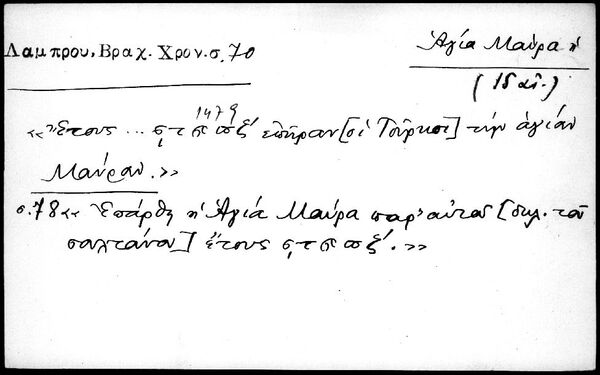 Λαμπρου, Βραχ. Χρον. σ. 70
Ἁγία Μαύρα ἡ
(15 αἰ.)
1479
«Ἔτους ... ϛτππξ´ ἐπῆραν [οἱ Τοῦρκοι] τὴν ἁγίαν
Μαύραν.»
σ. 78 « Ἐπάρθη ἡ Ἁγία Μαύρα παρ' αὐτοῦ [δηλ. τοῦ
σουλτάνου] ἔτους ϛτππξ´.»